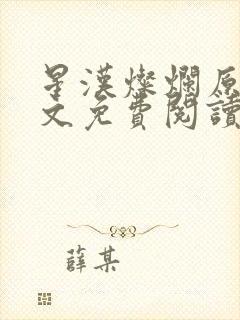 星漢燦爛原
文免費閱讀
薛某